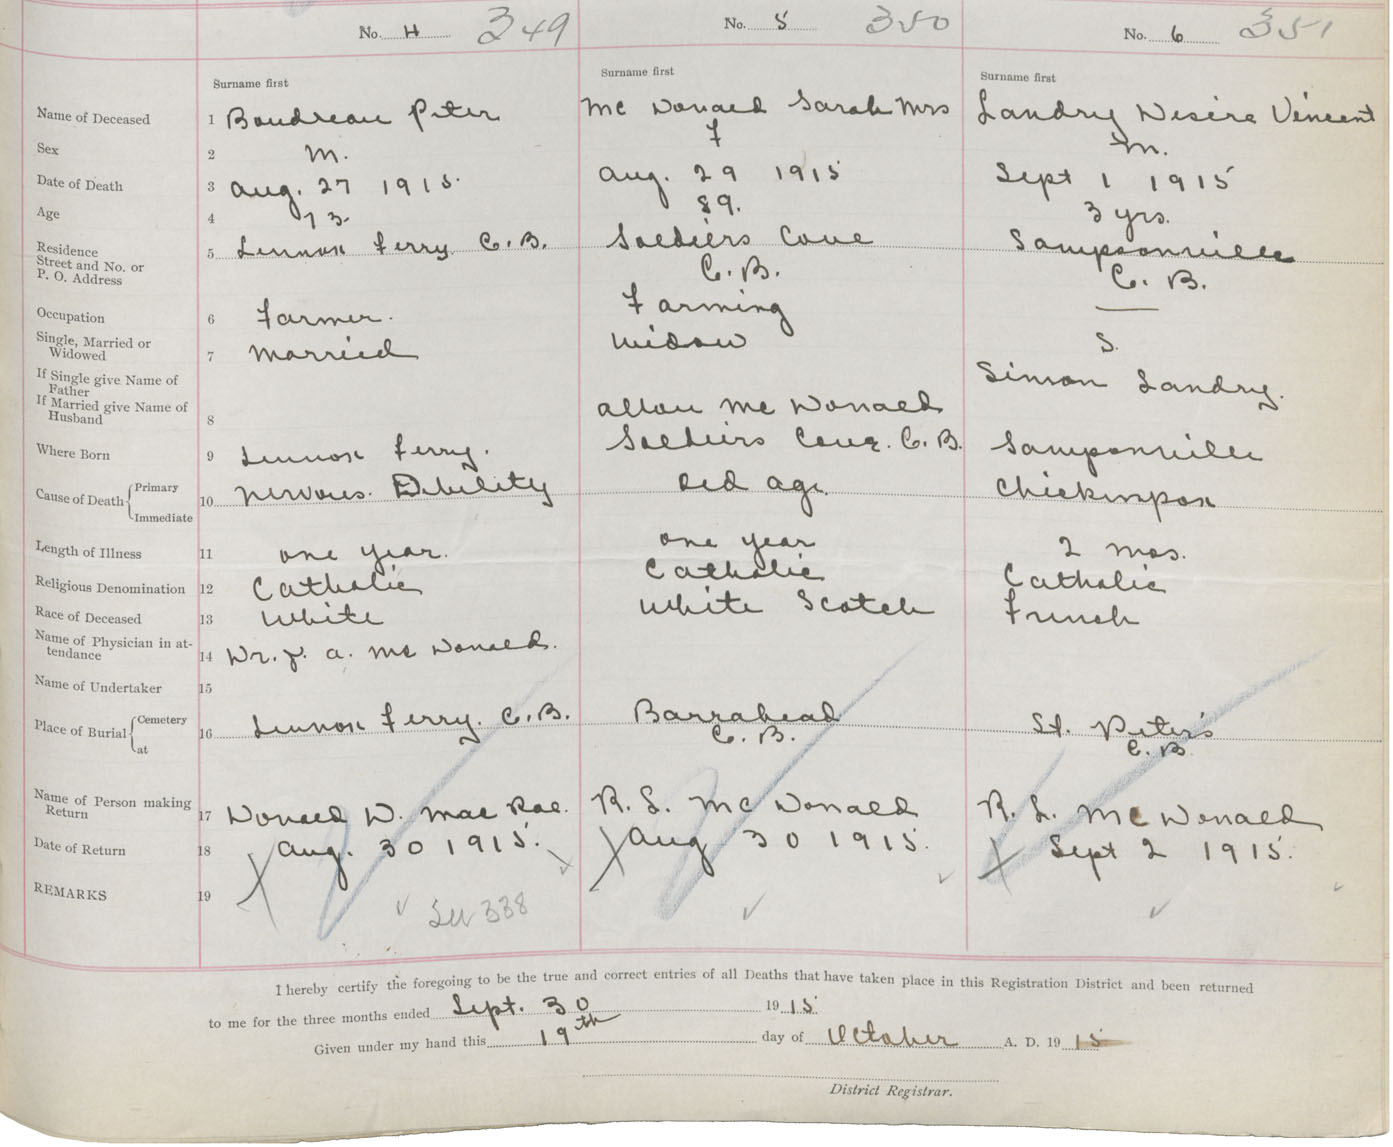 No. 4 349 No. 5 350 No. 6 351
Surname first Surname first Surname first
Name of Deceased 1 Boudreau Peter Mc Donald Sarah Mrs Landry Desire Vincent
Sex 2 M. F M.
Date of Death 3 Aug. 27 1915. Aug. 29 1915 Sept 1 1915
Age 4 73. 89. 3 yrs.
Residence
Street and No. or
P. O. Address 5 Lennox Ferry C. B. Soldiers Cove Sampsonville
C. B. C. B.
Occupation 6 Farmer. Farming —
Single, Married or
Widowed 7 Married Widow S.
If Single give Name of
Father Simon Landry.
If Married give Name of
Husband 8 Allan Mc Donald
Where Born 9 Lennox Ferry. Soldiers Cove. C. B. Samponville
Cause of Death { Primary
Immediate 10 Nervous. Debility Old age. Chickenpox
Length of Illness 11 one year. one year 2 mos.
Religious Denomination 12 Catholic Catholic Catholic
Race of Deceased 13 White White Scotch French
Name of Physician in at-
tendance 14 Dr. J. A. Mc Donald.
Name of Undertaker 15
Place of Burial { Cemetery
at 16 Lennox Ferry. C. B. Barrahead St. Peter's
C. B. C. B
Name of Person making
Return 17 Donald D. Mac Rae. R. L. Mc Donald R. L. Mc Donald
Date of Return 18 Aug. 30 1915. Aug 30 1915. Sept 2 1915.
REMARKS 19
338
I hereby certify the foregoing to be the true and correct entries of all Deaths that have taken place in this Registration District and been returned
to me for the three months ended Sept. 30 1915
Given under my hand this 19th day of October A. D. 1915
District Registrar.